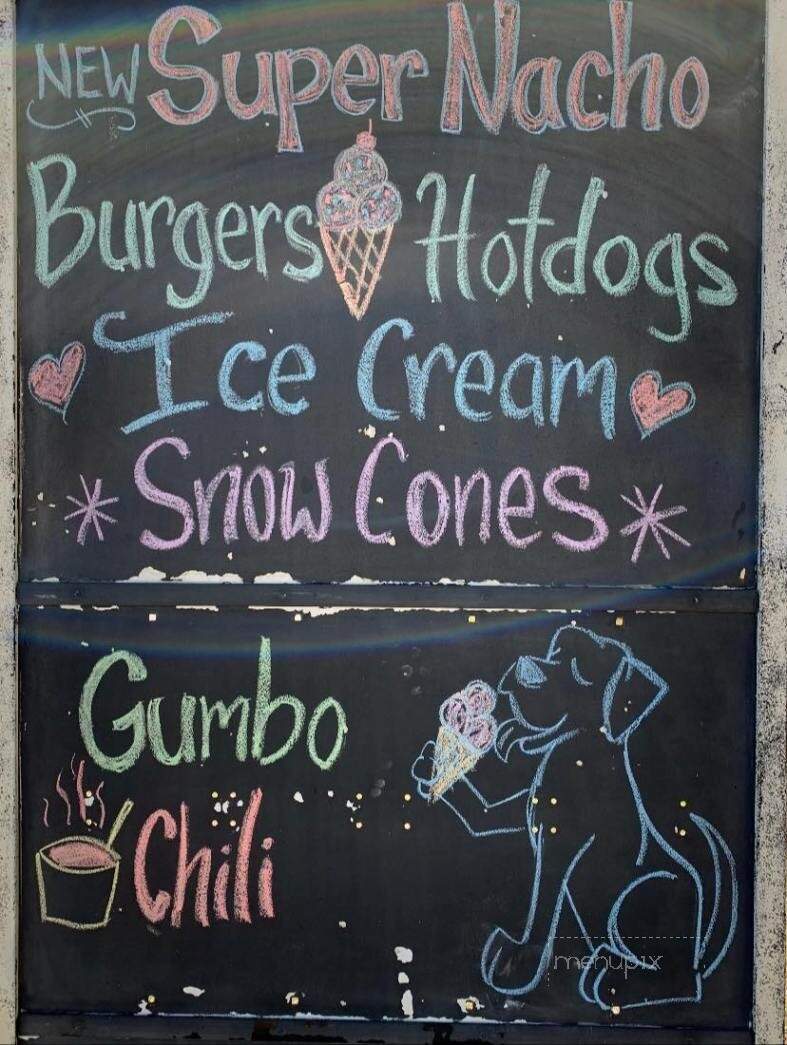 NEW Super Nacho
Burgers Hotdogs
Ice Cream
Snow Cones
Gumbo
Chili
menupix